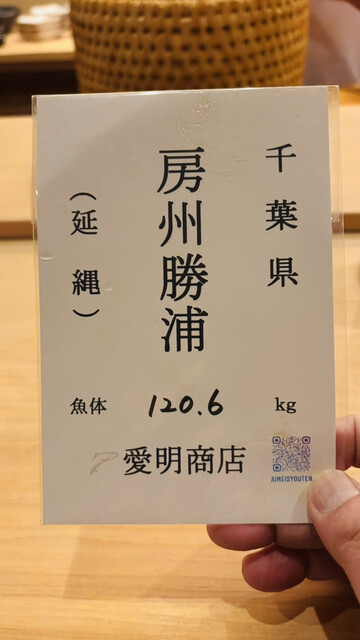 千葉県
房州勝浦
(延縄)
魚体 120.6 kg
愛明商店
AIMEISYOUTEN